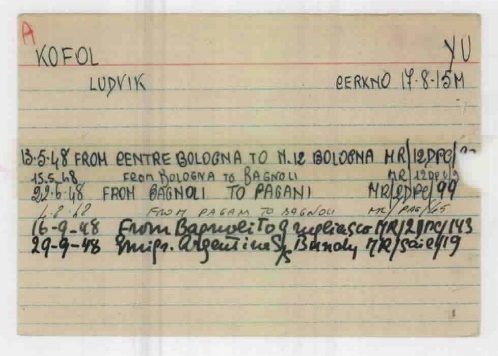 A
KOFOL YU
LUDVIK CERKNO 17-8-15M
13-5-48 FROM CENTRE BOLOGNA TO N.12 BOLOGNA MR/12DPC/
15.5.48 FROM BOLOGNA TO BAGNOLI MR/12DPC/
22-6-48 FROM BAGNOLI TO PAGANI MR/2DPC/99
4-8-48 FROM PAGANI TO BAGNOLI MR/PAG/65
16-9-48 From Bagnoli to Grugliasco MR/2DPC/143
29-9-48 Emigr. Argentina S/S Bundy MR/Sail/19